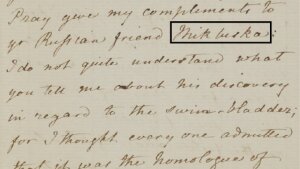 Pray give my complements to
yr Russian friend Mikluska:
I do not quite understand what
you tell me about his discovery
in regard to the swim-bladder;
for I thought every one admitted
that it was the homologue of